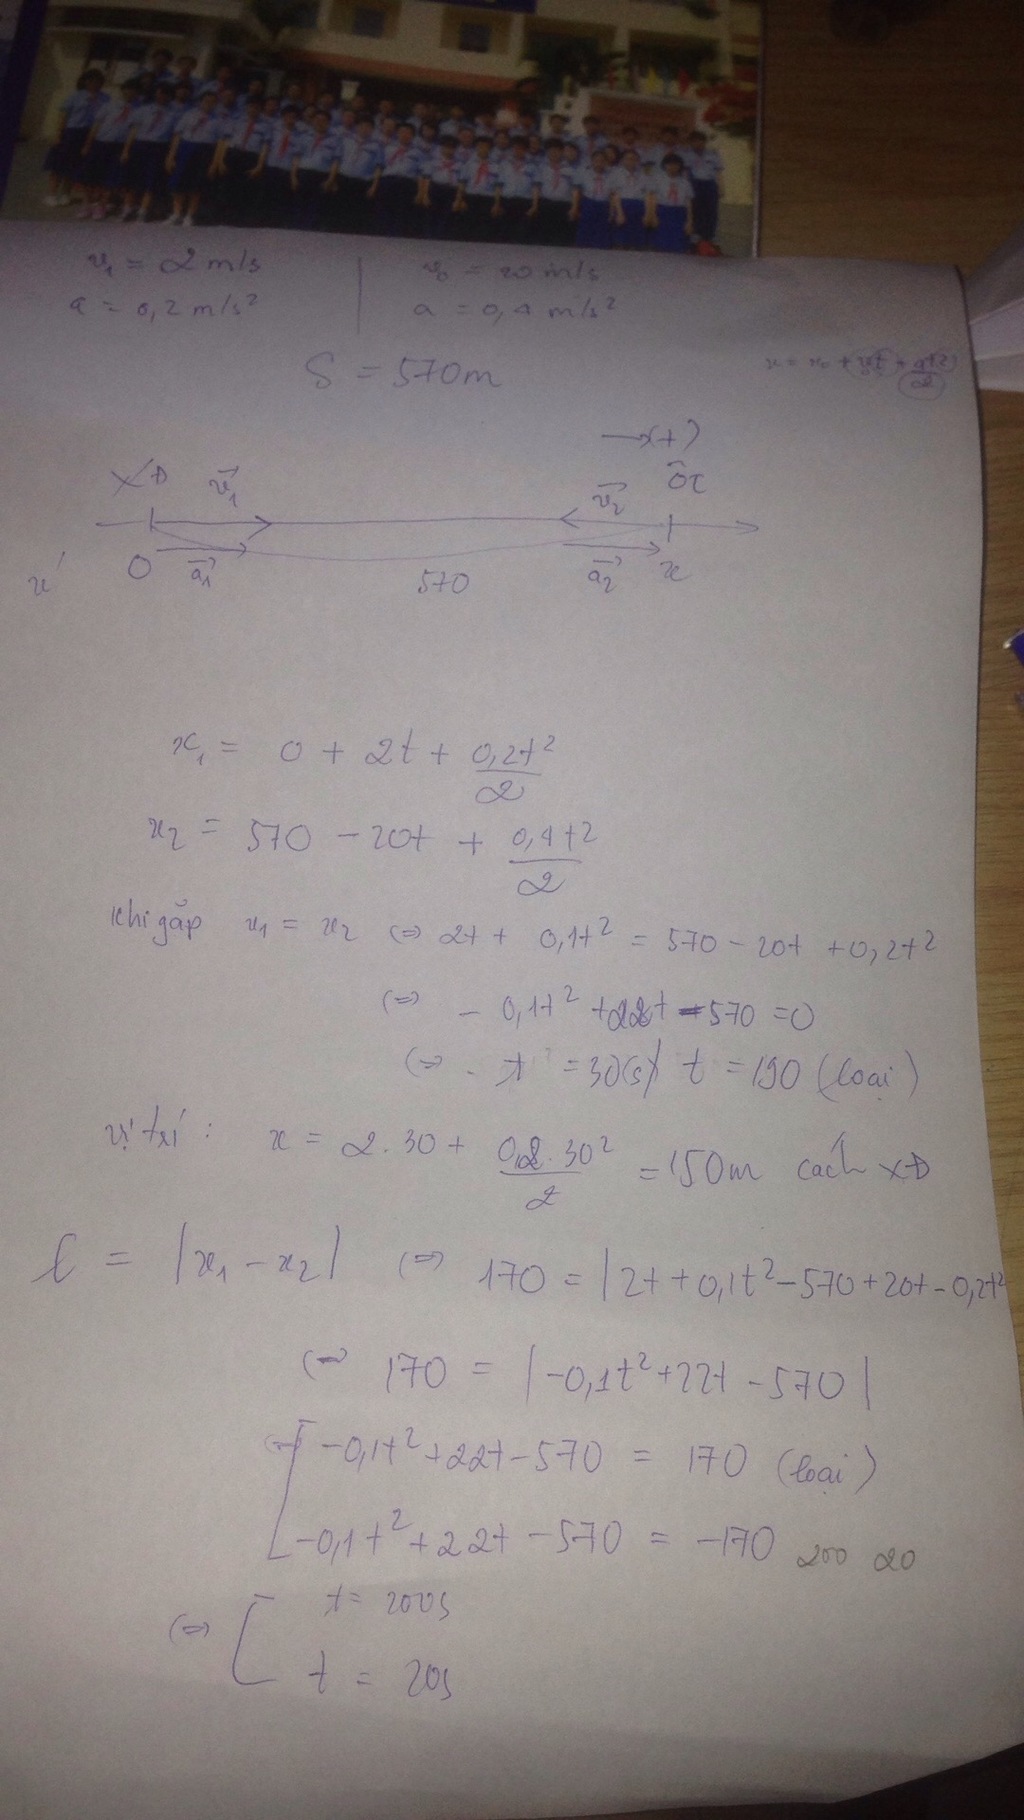 v₁ = 2 m/s | v₀ = 20 m/s
a = 0,2 m/s² | a = 0,4 m/s²
S = 570m
x = x₀ + v₀t + at²/2
→(+)
XĐ v₁→ v₂→ ôτ
x' O a₁→ 570 a₂→ x
x₁ = 0 + 2t + 0,2t²/2
x₂ = 570 - 20t + 0,4t²/2
khi gặp x₁ = x₂ (=) 2t + 0,1t² = 570 - 20t + 0,2t²
(=) - 0,1t² + 22t - 570 = 0
(=) t = 30(s) t = 190 (loại)
vị trí : x = 2.30 + 0,2.30²/2 = 150m cách XĐ
l = |x₁ - x₂| (=) 170 = |2t + 0,1t² - 570 + 20t - 0,2t²
(=) 170 = |-0,1t² + 22t - 570|
(=) [ -0,1t² + 22t - 570 = 170 (loại)
-0,1t² + 22t - 570 = -170 200 20
(=) [ t = 200s
t = 20s